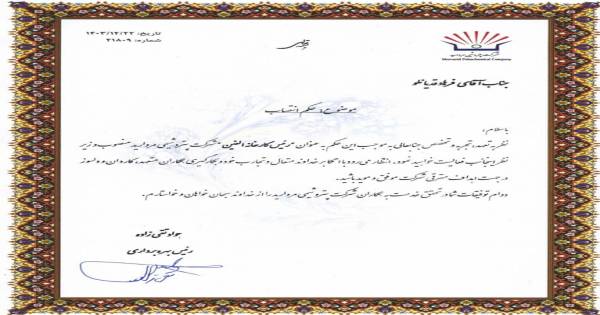 تاریخ: ۱۴۰۳/۱۲/۲۲
شماره: ۲۱۸۰۹
شرکت پتروشیمی مروارید
Morvarid Petrochemical Company
جناب آقای فرهاد قدیانلو
موضوع: حکم انتصاب
با سلام؛
نظر به تعهد، تجربه و تخصص جنابعالی به موجب این حکم به عنوان "رئیس کارخانه الفین" شرکت پتروشیمی مروارید منصوب و زیر
نظر اینجانب فعالیت خواهید نمود. انتظار می رود با اتکا بر خداوند متعال و تجارب خود و بکارگیری همکاران متعهد، کاردان و دلسوز
در جهت اهداف مترقی شرکت موفق و موید باشید.
دوام توفیقات شما در تحقق خدمت به همکاران شرکت پتروشیمی مروارید را از خداوند سبحان خواهان و خواستارم.
جواد تقی زاده
رئیس بهره برداری